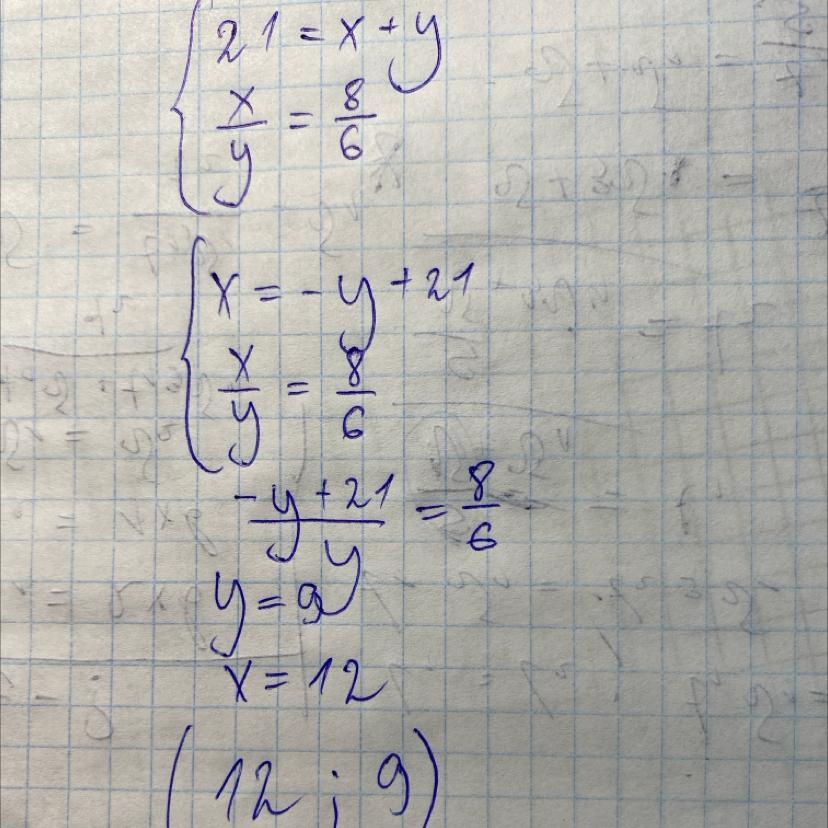 21 = x + y
x/y = 8/6
x = -y + 21
x/y = 8/6
(-y + 21)/y = 8/6
y = 9
x = 12
(12 ; 9)